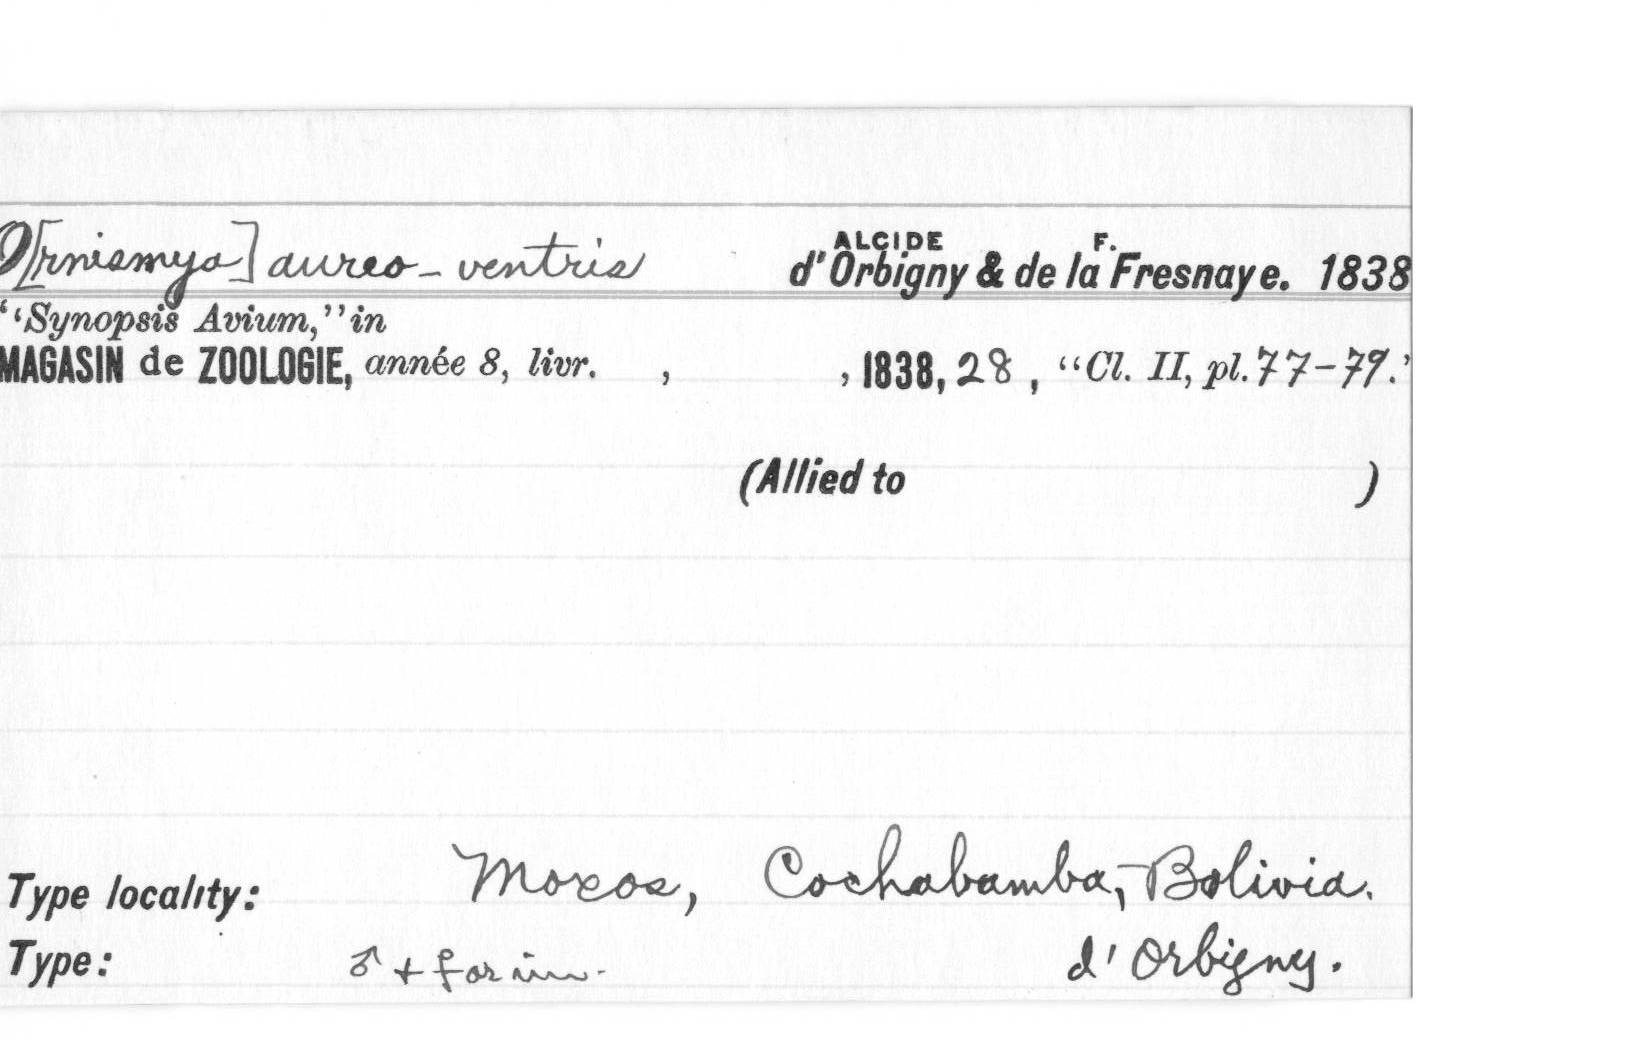 O[rnismya] aureo-ventris
ALCIDE F.
d'Orbigny & de la Fresnaye. 1838
"Synopsis Avium," in
MAGASIN de ZOOLOGIE, année 8, livr. , , 1838, 28, "Cl. II, pl. 77-79."
(Allied to )
Type locality: Moxos, Cochabamba, Bolivia.
Type: ♂ + ♀ or imm. d'Orbigny.